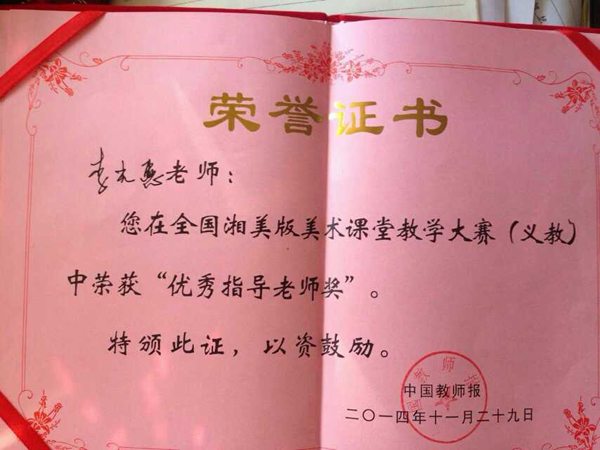 荣誉证书
李尤惠老师：
您在全国湘美版美术课堂教学大赛（义教）
中荣获“优秀指导老师奖”。
特颁此证，以资鼓励。
中国教师报
二〇一四年十一月二十九日